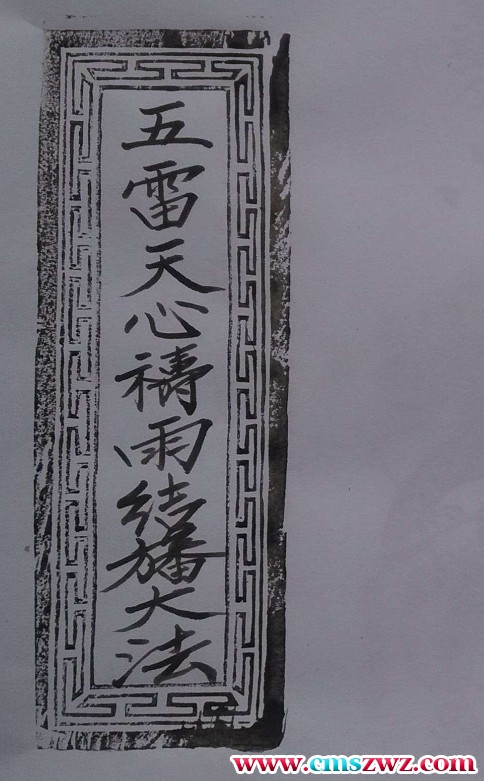 五雷天心禱雨結旛大法
www.cmszwz.com